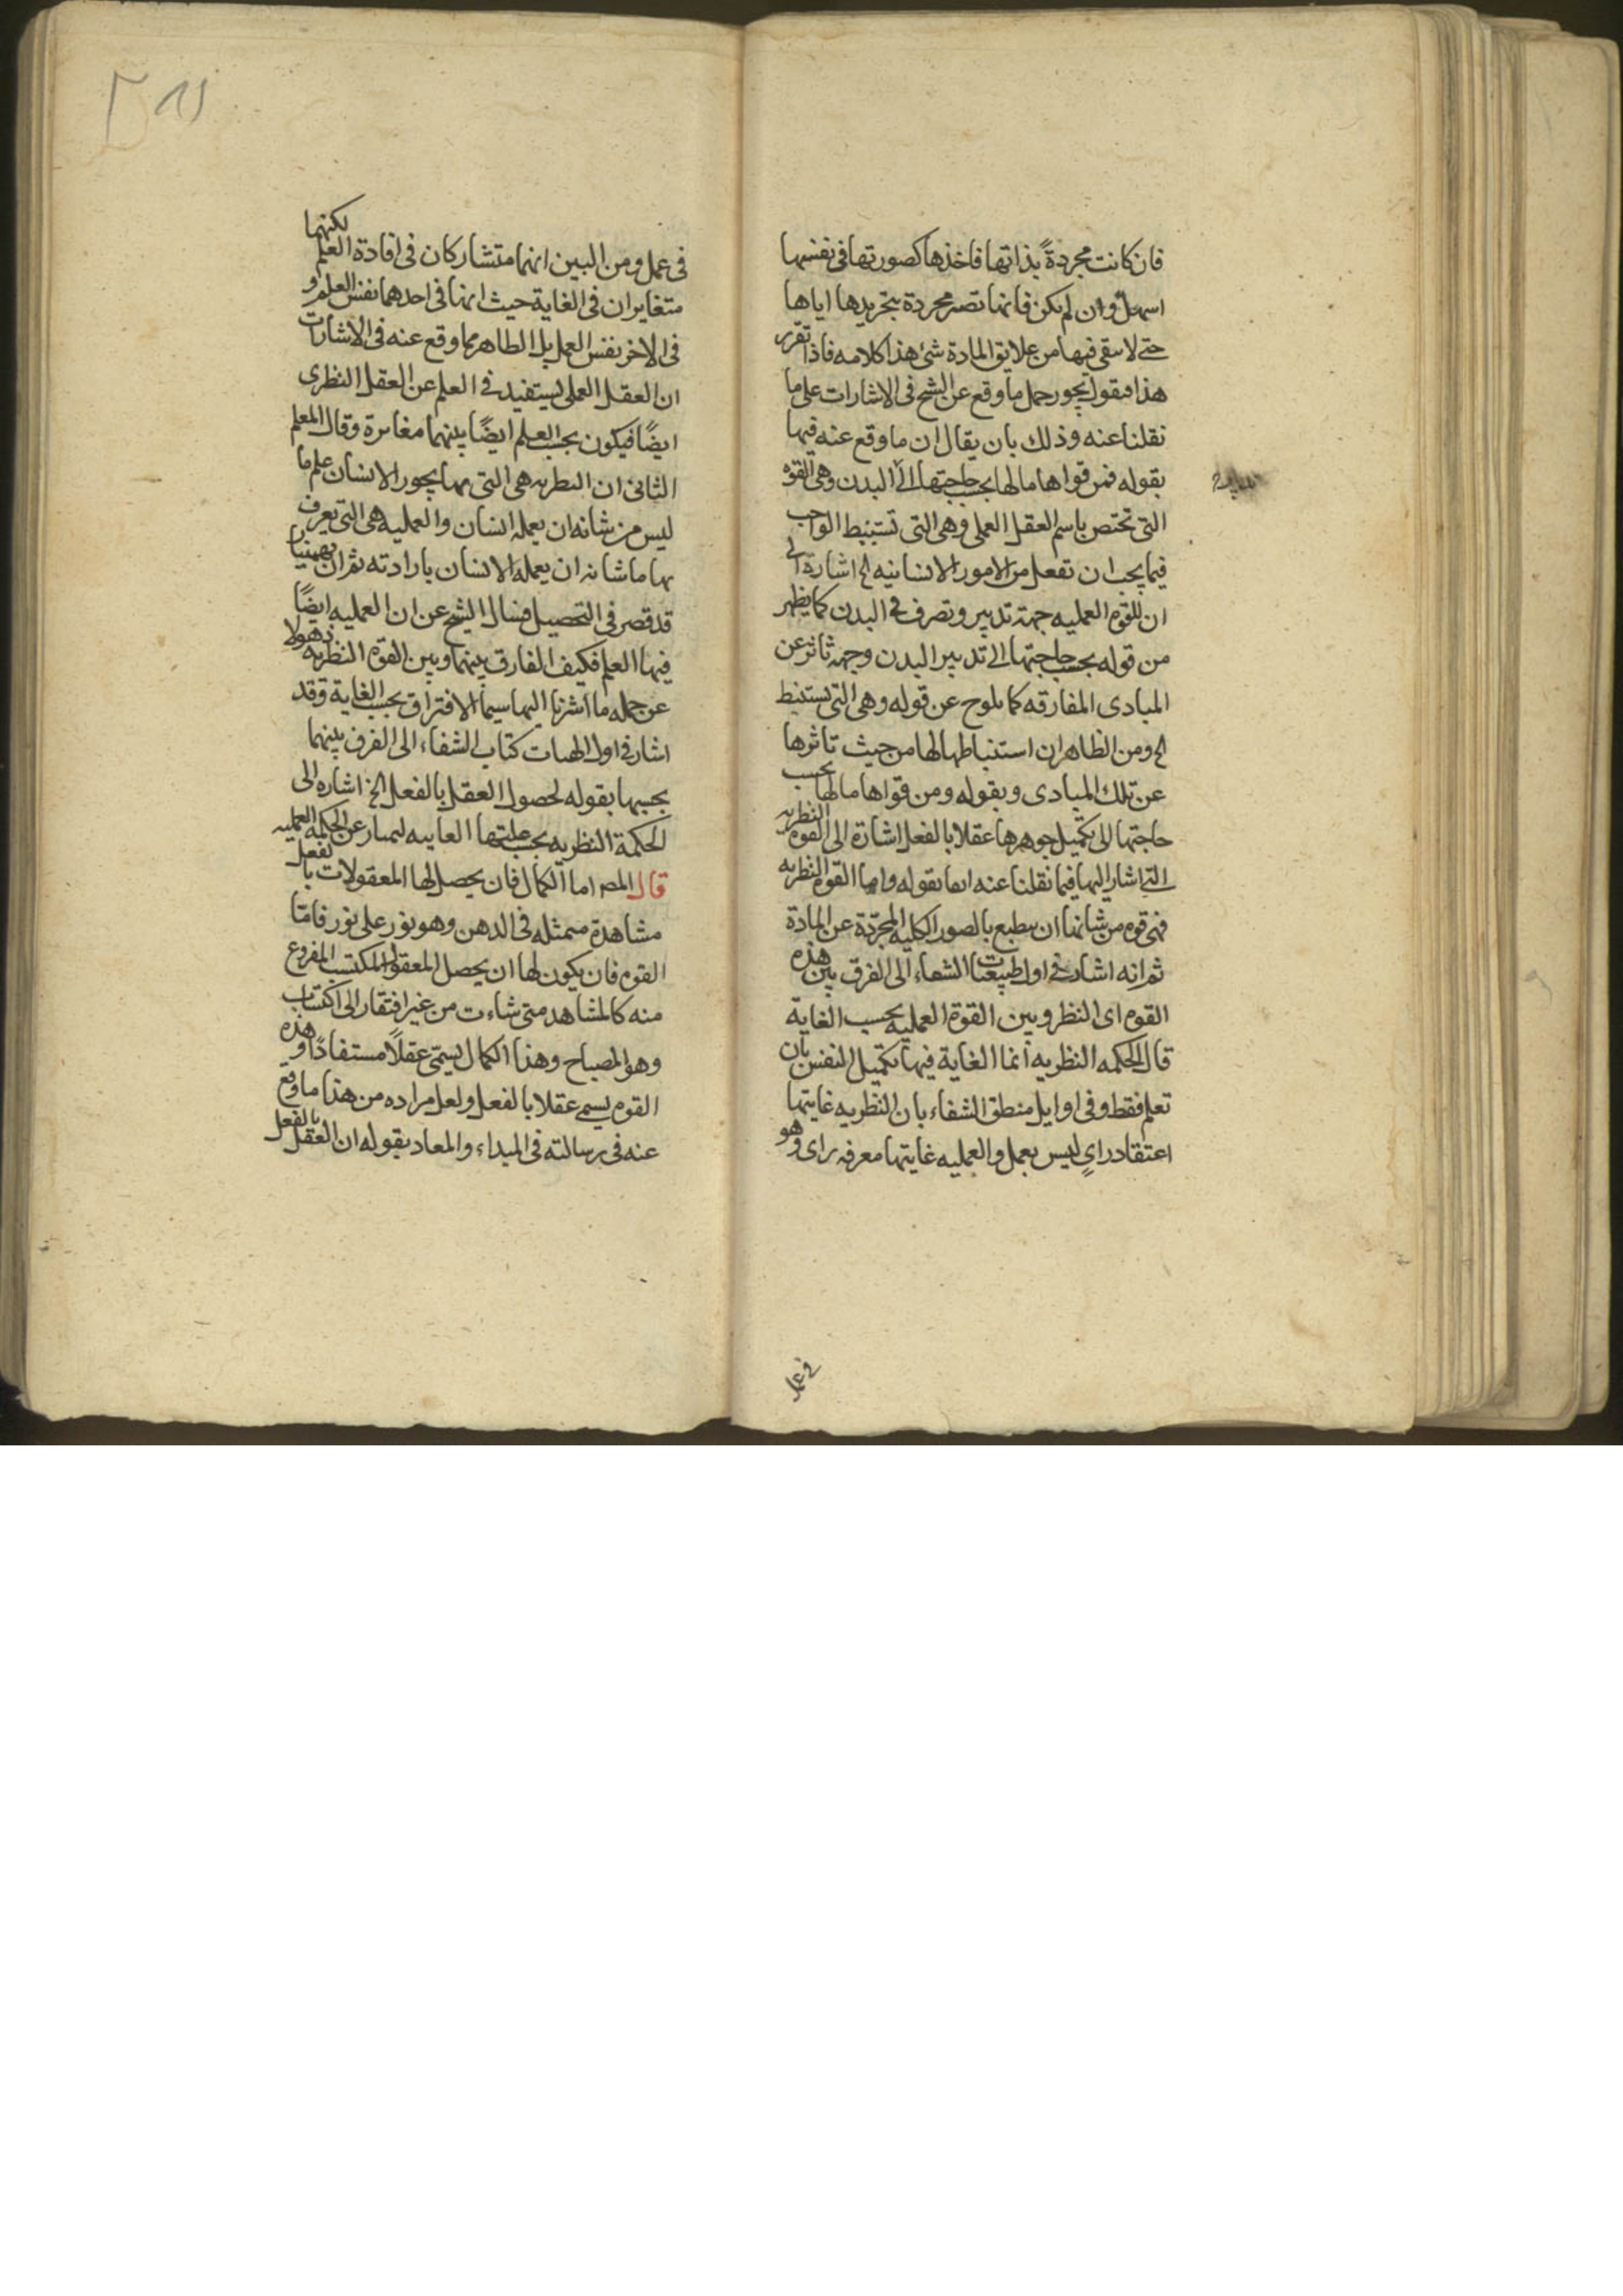 فان كانت مجردةً بذاتها فاخذها كصورتها فى نفسها
اسهل وان لم يكن فانها تصير مجردة بتجريدها اياها
حتى لا يبقى فيها من علايق المادة شئ هذا كلامه فاذا تقرر
هذا فنقول يجوز حمل ما وقع عن الشيخ فى الاشارات على ما
نقلنا عنه وذلك بان يقال ان ما وقع عنه فيها
بقوله فمن قواها ما لها بحسب حاجتها الى البدن وهى القوه
التى تختص باسم العقل العملى وهى التى تستنبط الواجب
فيما يجب ان تفعل من الامور الانسانيه الخ اشارة الى
ان للقوه العمليه جهة تدبير وتصرف فى البدن كما يظهر
من قوله بحسب حاجتها الى تدبير البدن وجهه تاثر عن
المبادى المفارقه كما يلوح عن قوله وهى التى يستنبط
الخ ومن الظاهر ان استنباطها لها من حيث تاثرها
عن تلك المبادى وبقوله ومن قواها ما لها بحسب
حاجتها الى تكميل جوهرها عقلا بالفعل اشارة الى القوه النظريه
التى اشار اليها فيما نقلنا عنه انفا بقوله واما القوه النظريه
فهى قوه من شانها ان ينطبع بالصور الكليه المجردة عن المادة
ثم انه اشار فى اول طبيعيات الشفاء الى الفرق بين هذه
القوه اى النظر وبين القوة العمليه بحسب الغاية
قال الحكمه النظريه انما الغاية فيها تكميل النفس بان
تعلم فقط وفى اوايل منطق الشفاء بان النظريه غايتها
اعتقاد راىٍ ليس بعمل والعمليه غايتها معرفه راى وهو
فى عمل
فى عمل ومن البين انهما متشاركان فى افادة العلم لكنهما
متغايران فى الغاية حيث انها فى احدهما نفس العلم و
فى الاخر نفس العمل بل الظاهر مما وقع عنه فى الاشارات
ان العقل العملى يستفيد فى العلم عن العقل النظرى
ايضًا فيكون بحسب العلم ايضًا بينهما مغايرة وقال المعلم
الثانى ان النظريه هى التى بها يحوز الانسان علم ما
ليس من شانه ان يعمله انسان والعمليه هى التى يعرف
بها ما شانه ان يعمله الانسان بارادته ثم ان بهمنيار
قد قصر فى التحصيل فسال الشيخ عن ان العمليه ايضًا
فيها العلم فكيف الفارق بينها وبين القوه النظريه ذهولا
عن جمله ما اشرنا اليها سيما الافتراق بحسب الغاية وقد
اشار فى اول الهيات كتاب الشفاء الى الفرق بينهما
بحسبها بقوله لحصول العقل بالفعل الخ اشاره الى
الحكمة النظريه بحسب علتها الغاييه ليمتاز عن الحكمه العمليه
قال المصـ اما الكمال فان يحصل لها المعقولات بالفعل
مشاهدة متمثله فى الذهن وهو نور على نور فامّا
القوه فان يكون لها ان يحصل المعقول المكتسب المفروغ
منه كالمشاهد متى شاءت من غير افتقار الى اكتساب
وهو المصباح وهذا الكمال يسمّى عقلًا مستفادًا و هذه
القوه يسمى عقلا بالفعل ولعل مراده من هذا ما وقع
عنه فى رسالته فى المبداء والمعاد بقوله ان العقل بالفعل